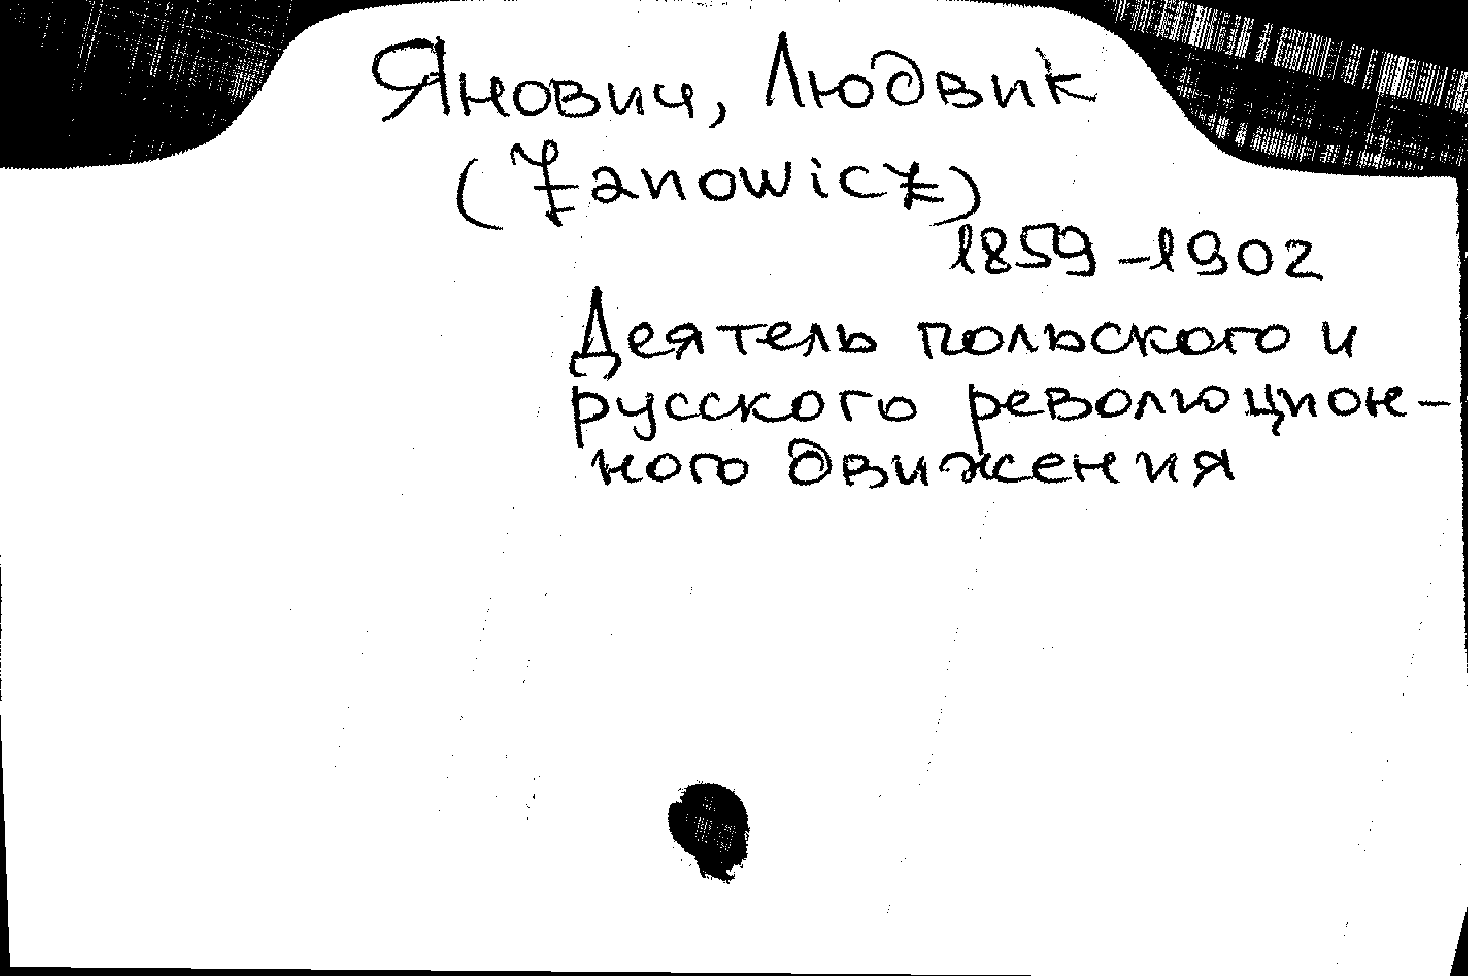 Янович, Людвик
(Janowicz)
1859-1902
Деятель польского и
русского революцион-
ного движения